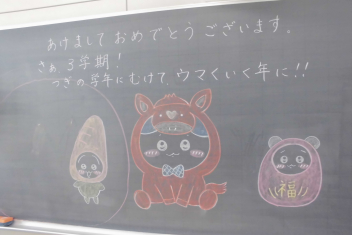 あけまして おめでとう ございます。
さぁ 3学期!
つぎの学年にむけて、ウマくいく年に!!
福